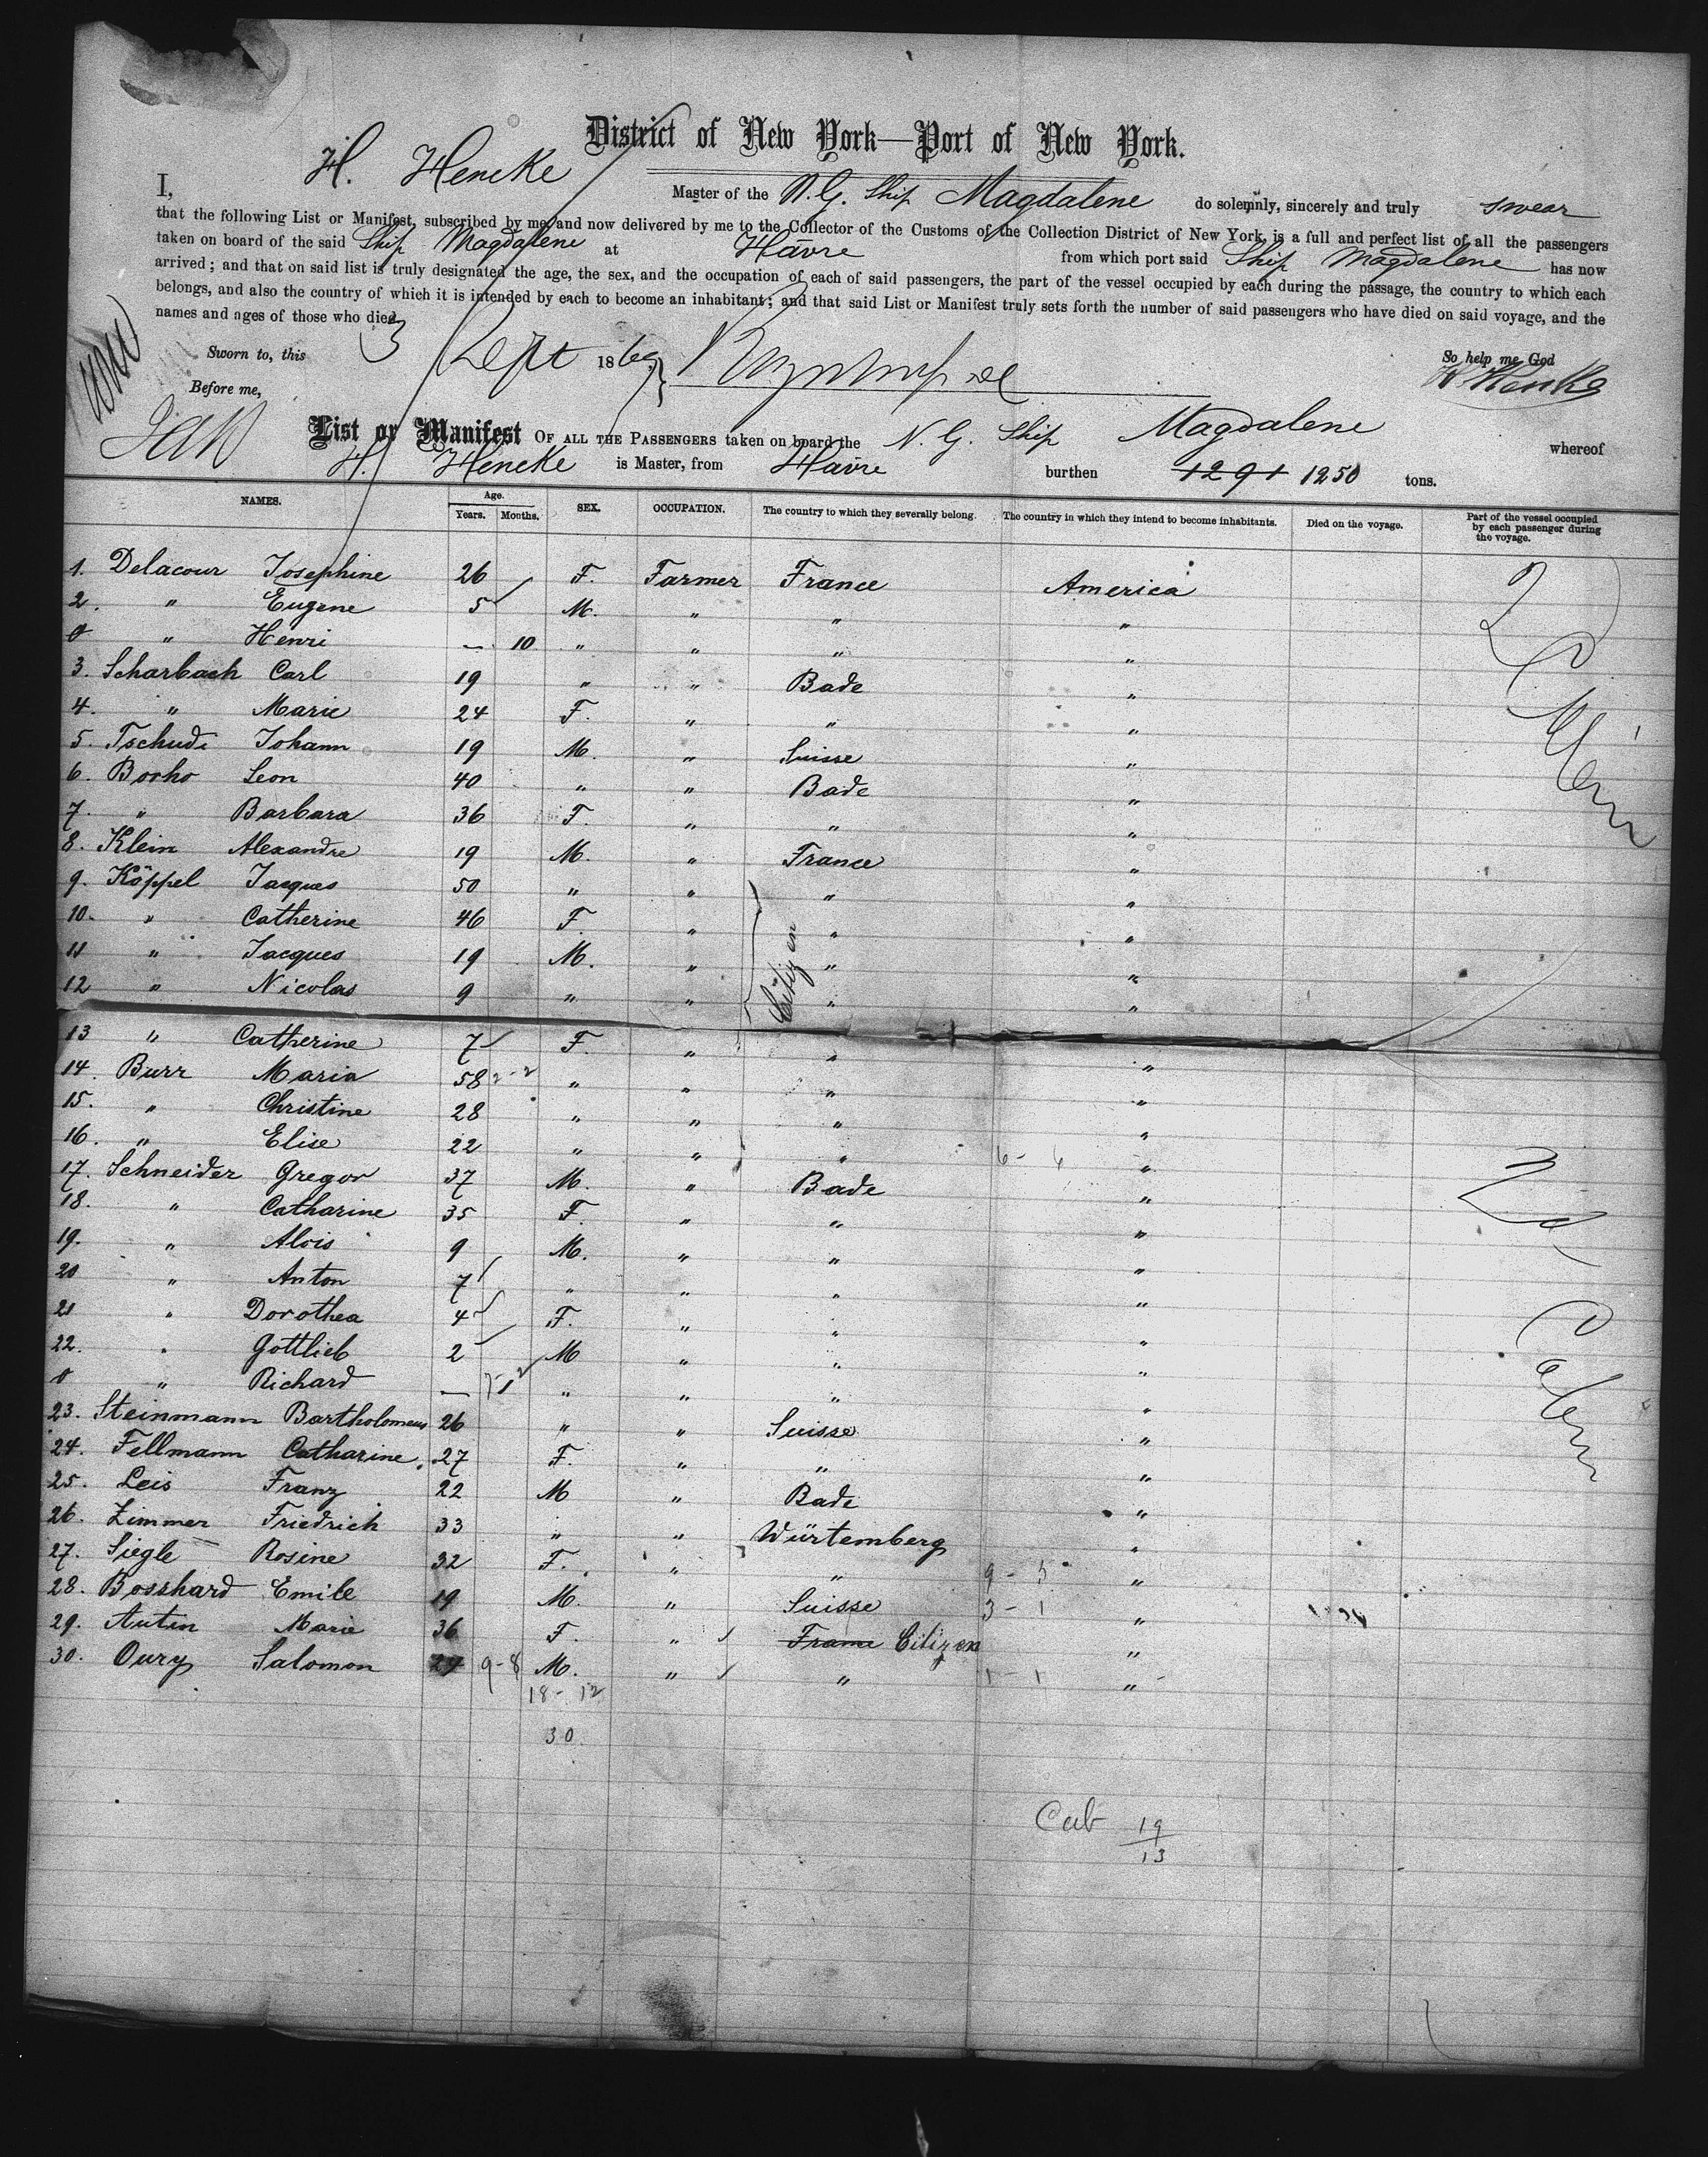 District of New York—Port of New York.
I, H. Hencke Master of the N. G. Ship Magdalene do solemnly, sincerely and truly swear
that the following List or Manifest, subscribed by me, and now delivered by me to the Collector of the Customs of the Collection District of New York, is a full and perfect list of all the passengers
taken on board of the said Ship Magdalene at Havre from which port said Ship Magdalene has now
arrived; and that on said list is truly designated the age, the sex, and the occupation of each of said passengers, the part of the vessel occupied by each during the passage, the country to which each
belongs, and also the country of which it is intended by each to become an inhabitant; and that said List or Manifest truly sets forth the number of said passengers who have died on said voyage, and the
names and ages of those who died.
Sworn to, this 3 Sept 1869 So help me God
Before me, H Hencke
List or Manifest OF ALL THE PASSENGERS taken on board the N. G. Ship Magdalene whereof
H. Hencke is Master, from Havre burthen 1291 1250 tons.
NAMES. Age. Years. Months. SEX. OCCUPATION. The country to which they severally belong. The country in which they intend to become inhabitants. Died on the voyage. Part of the vessel occupied by each passenger during the voyage.
1. Delacour Josephine 26 F. Farmer France America
2. " Eugene 5 M. " " "
0 " Henri — 10 " " " "
3. Scharbach Carl 19 " " Bade "
4. " Marie 24 F. " " "
5. Tschudi Johann 19 M. " Suisse "
6. Bocho Leon 40 " " Bade "
7. " Barbara 36 F. " " "
8. Klein Alexandre 19 M. " France "
9. Köppel Jacques 50 " " " "
10. " Catherine 46 F. " " "
11 " Jacques 19 M. " Citizen " "
12 " Nicolas 9 " " " "
13 " Catherine 7 F. " " "
14. Burr Maria 58 2-2 " " " "
15. " Christine 28 " " " "
16. " Elise 22 " " " "
17. Schneider Gregor 37 M. " Bade "
18. " Catharine 35 F. " " "
19. " Alois 9 M. " " "
20 " Anton 7 " " " "
21 " Dorothea 4 F. " " "
22. " Gottlieb 2 M " " "
0 " Richard — " " " "
23. Steinmann Bartholomeus 26 " " Suisse "
24. Fellmann Catharine 27 F. " " "
25. Leis Franz 22 M " Bade "
26. Zimmer Friedrich 33 " " Würtemberg "
27. Siegle Rosine 32 F. " " "
28. Bosshard Emile 19 M. " Suisse 3-1 "
29. Autin Marie 36 F. " France Citizen "
30. Oury Salomon 29 9-8 M. " " 1-1 "
18-12
30
Cab 19
13